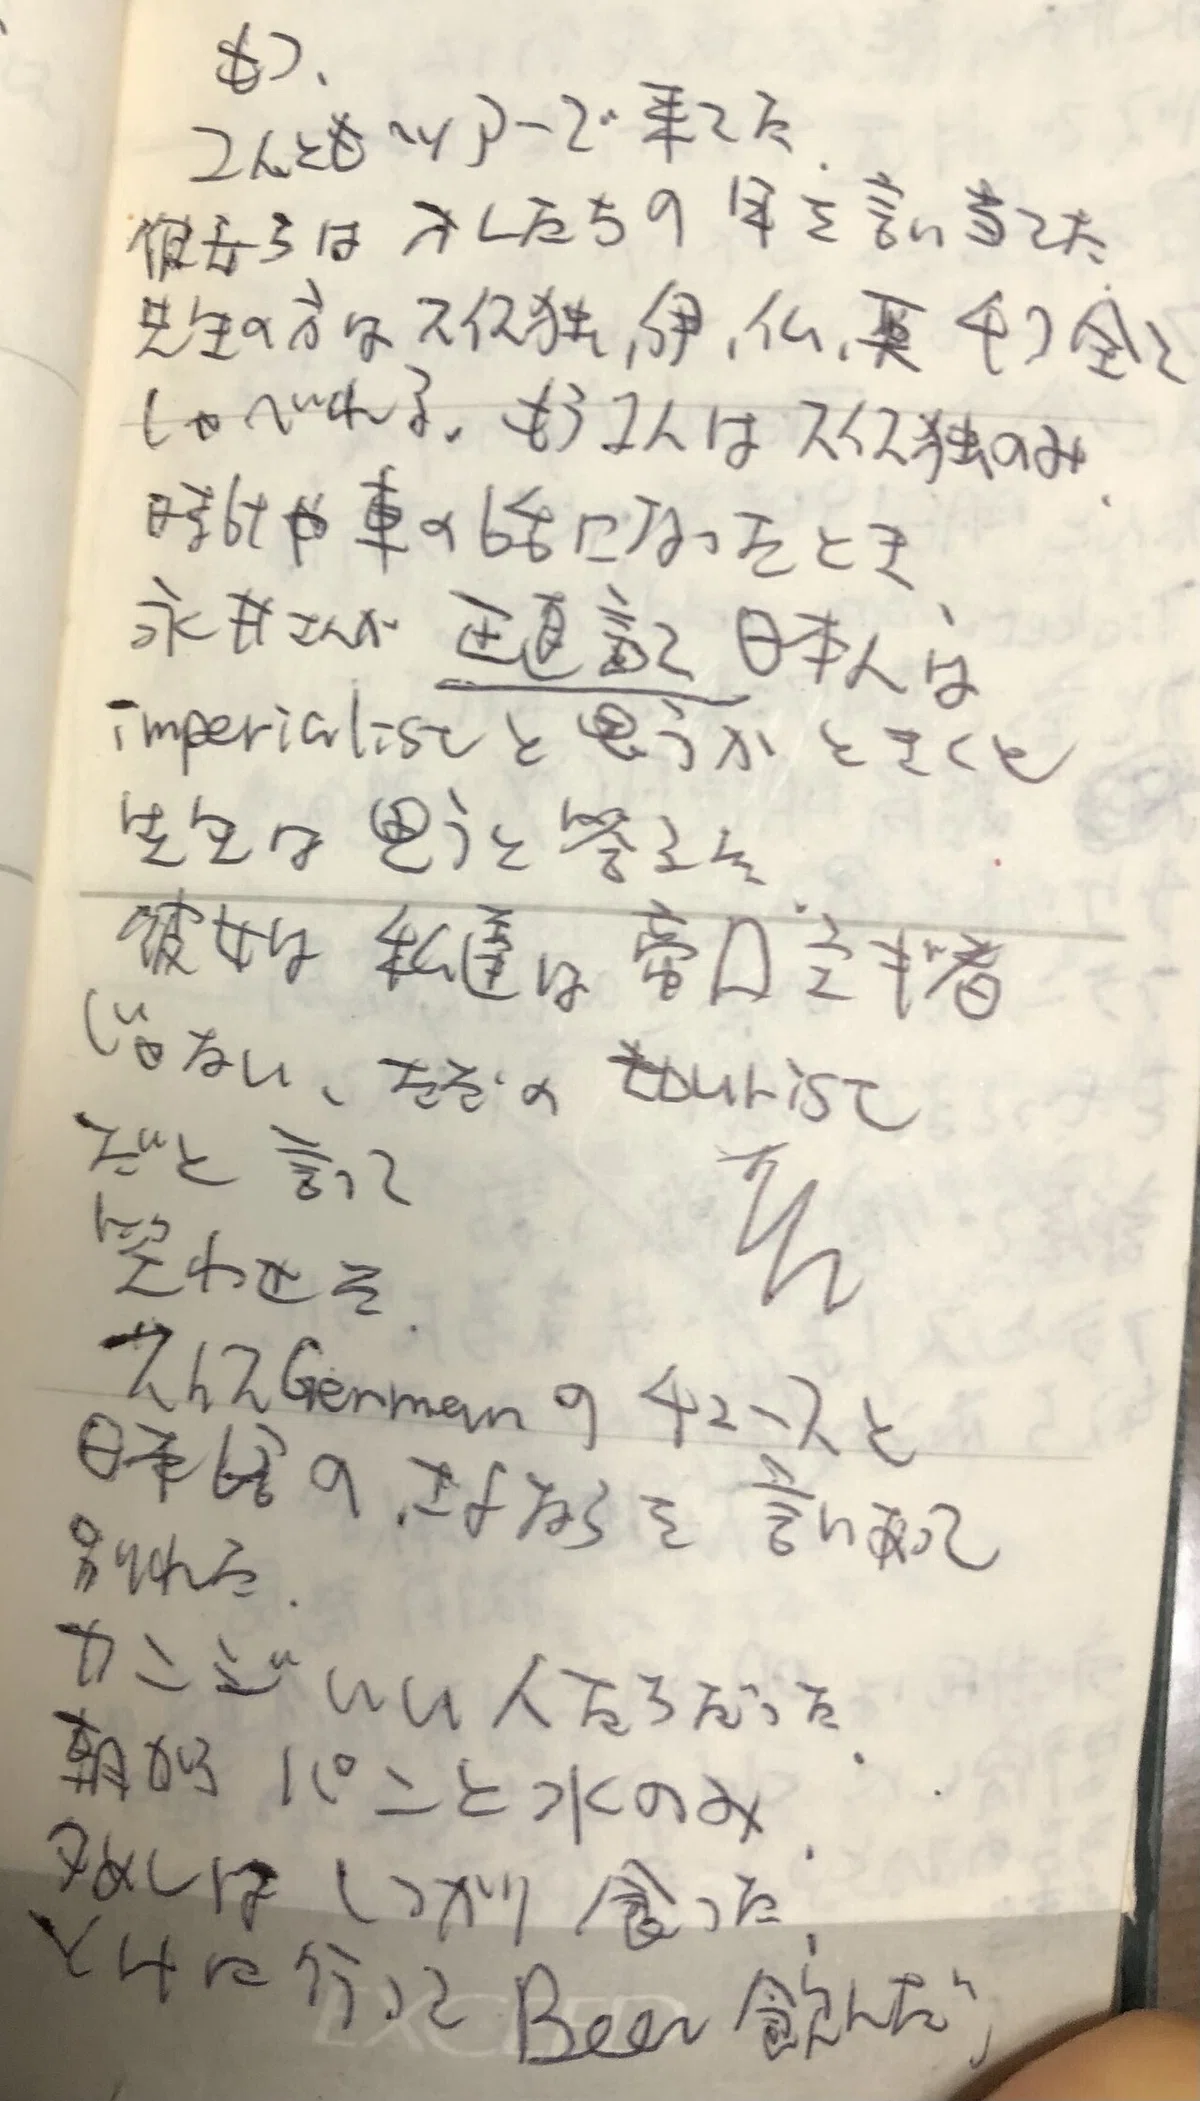 もつ、
2人ともツアーで来てた.
彼女らはオレたちの年を言い当てた
先生の方はスイス独,伊,仏,英 4つ全て
しゃべれる. もう1人はスイス独のみ.
時計や車の話になったとき
永井さんが 正直言って 日本人は
imperialistと思うかときくと
先生は思うと答えた.
彼女は 私達は帝国主ギ者
じゃない、ただの tourist
だと言って
笑わせた.
スイスGermanのチュースと
日本語の さよならを 言いあって
別れた.
カンジいい人たちだった.
朝から パンと水のみ.
夕めしは しっかり食った.
Beer 飲んだり